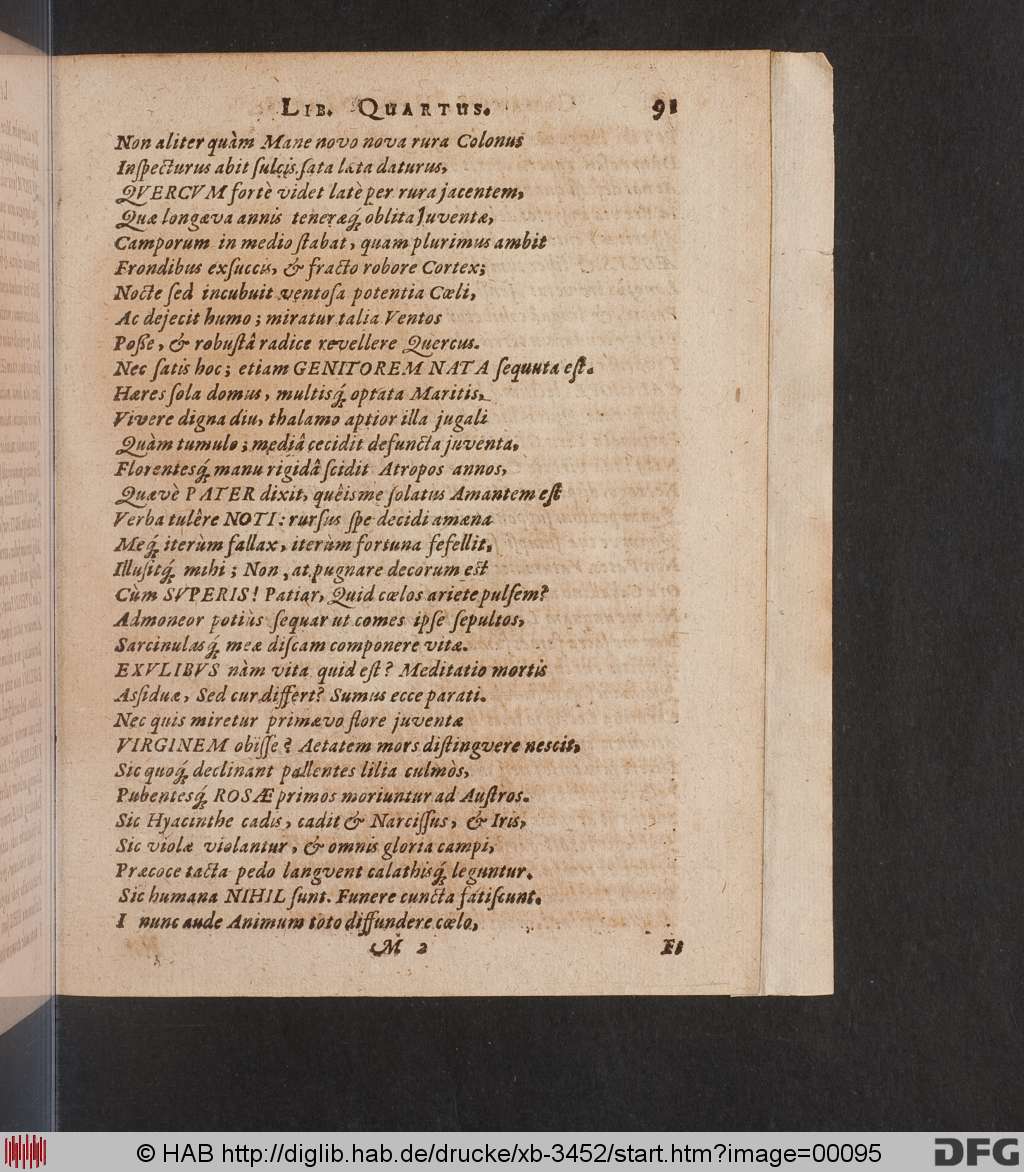 LIB. QUARTUS. 91
Non aliter quàm Mane novo nova rura Colonus
Inſpecturus abit ſulcis ſata lata daturus,
QVERCVM fortè videt latè per rura jacentem,
Quæ longæva annis teneræq́; oblita Juventæ,
Camporum in medio ſtabat, quam plurimus ambit
Frondibus exſuccis, & fracto robore Cortex;
Nocte ſed incubuit ventoſa potentia Cœli,
Ac dejecit humo; miratur talia Ventos
Poſſe, & robuſtâ radice revellere Quercus.
Nec ſatis hoc; etiam GENITOREM NATA ſequuta eſt.
Hæres ſola domus, multisq́; optata Maritis,
Vivere digna diu, thalamo aptior illa jugali
Quàm tumulo; mediâ cecidit defuncta juventa,
Florentesq́; manu rigidâ ſcidit Atropos annos,
Quævè PATER dixit, quêis me ſolatus Amantem eſt
Verba tulêre NOTI: rurſus ſpe decidi amæna
Meq́; iterùm fallax, iterùm fortuna fefellit,
Illuſitq́; mihi; Non, at pugnare decorum eſt
Cùm SVPERIS! Patiar, Quid cœlos ariete pulſem?
Admoneor potiùs ſequar ut comes ipſe ſepultos,
Sarcinulasq́; meæ diſcam componere vitæ.
EXVLIBVS nàm vita quid eſt? Meditatio mortis
Aſſiduæ, Sed cur differt? Sumus ecce parati.
Nec quis miretur primævo flore juventæ
VIRGINEM obiſſe? Aetatem mors diſtingvere nescit,
Sic quoq́; declinant pallentes lilia culmòs,
Pubentesq́; ROSÆ primos moriuntur ad Auſtros.
Sic Hyacinthe cadis, cadit & Narciſſus, & Iris,
Sic violæ violantur, & omnis gloria campi,
Præcoce tacta pedo langvent calathisq́; leguntur.
Sic humana NIHIL ſunt. Funere cuncta fatiſcunt.
I nunc aude Animum toto diffundere cœlo,
M 2 Fi
© HAB http://diglib.hab.de/drucke/xb-3452/start.htm?image=00095 DFG